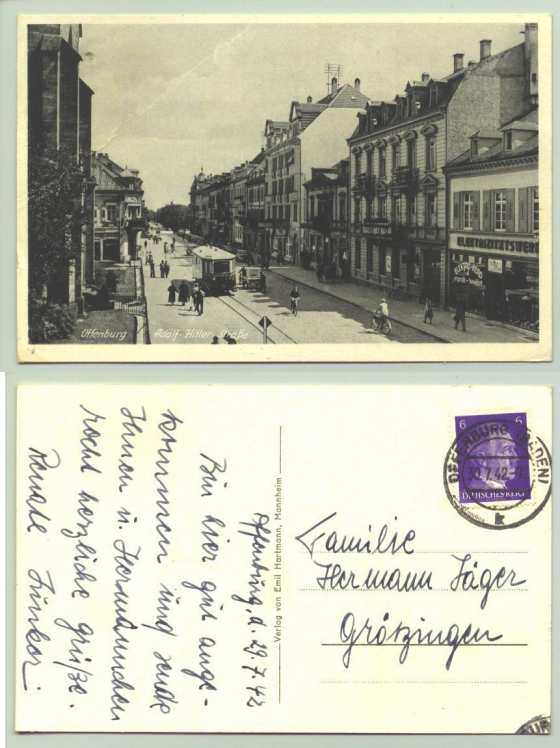 ELEKTRIZITÄTSWERK
Offenburg Adolf-Hitler-Straße
6 6
DEUTSCHES REICH
OFFENBURG (BADEN)
30.7.42
k
Verlag von Emil Hartmann, Mannheim
Offenburg, d. 29.7.42
Bin hier gut ange-
kommen und sende
Ihnen u. Hermännchen
recht herzliche Grüße.
Renate Junker.
Familie
Hermann Jäger
Grötzingen